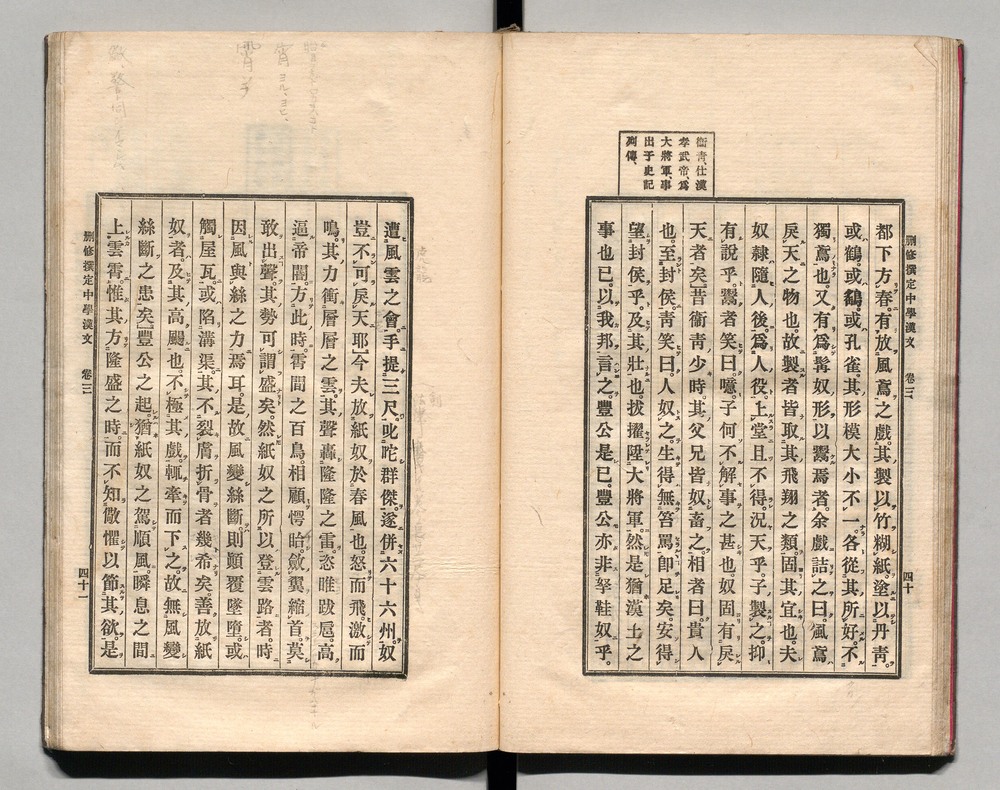 刪修撰定中學漢文 卷三 四十
衞靑、仕漢
孝武帝、爲
大將軍、事
出于史記
列傳、
都下方春。有放風鳶之戲。其製以竹糊紙。塗以丹靑。
或鶴。或鷂。或孔雀。其形模大小不一。各從其所好。不
獨鳶也。又有爲髯奴形以鬻焉者。余戲詰之曰。風鳶
戾天之物也。故製者皆取其飛翔之類。固其宜也。夫
奴隷隨人後。爲人役。上堂且不得。況天乎。子製之。抑
有說乎。鬻者笑曰。噫。子何不解事之甚也。奴固有戾
天者矣。昔衞靑少時。其父兄皆奴畜之。相者曰。貴人
也。至封侯。靑笑曰。人奴之生。得無笞罵卽足矣。安得
望封侯乎。及其壯也。拔擢陞大將軍。然是猶漢土之
事也已。以我邦言之。豐公是已。豐公亦非拏鞋奴乎。
遭風雲之會。手提三尺。叱咤群傑。遂併六十六州。奴
豈不可戾天耶。今夫放紙奴於春風也。怒而飛。激而
鳴。其力衝層層之雲。其聲轟隆隆之雷。恣睢跋扈。高
逼帝閽。方此時。霄間之百鳥。相顧愕眙。斂翼縮首。莫
敢出聲。其勢可謂盛矣。然紙奴之所以登雲路者。時
因風與絲之力焉耳。是故風變絲斷。則顚覆墜墮。或
觸屋瓦。或陷溝渠。其不裂膚折骨者幾希矣。善放紙
奴者。及其高颺也。不極其戲。輒牽而下之。故無風變
絲斷之患矣。豐公之起。猶紙奴之駕順風。瞬息之間
上雲霄。惟其方隆盛之時。而不知儆懼以節其欲。是
刪修撰定中學漢文 卷三 四十一